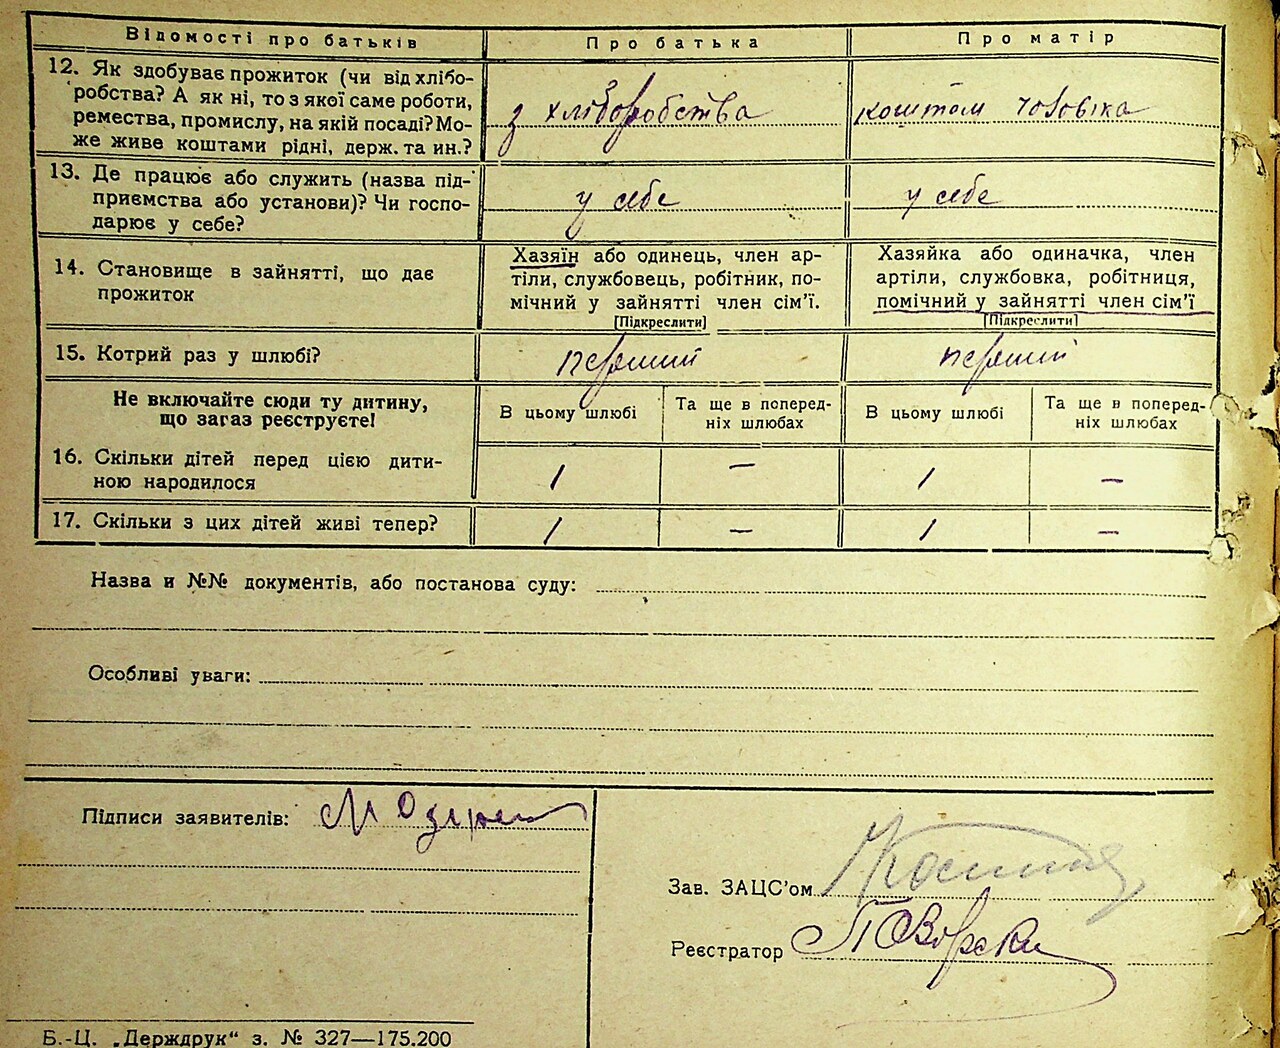 Відомості про батьків
Про батька
Про матір
12. Як здобуває прожиток (чи від хлібо-
робства? А як ні, то з якої саме роботи,
ремества, промислу, на якій посаді? Мо-
же живе коштами рідні, держ. та ин.?
з хліборобства
коштом чоловіка
13. Де працює або служить (назва під-
приємства або установи)? Чи госпо-
дарює у себе?
у себе
у себе
14. Становище в зайнятті, що дає
прожиток
Хазяїн або одинець, член ар-
тілі, службовець, робітник, по-
мічний у зайнятті член сім’ї.
[Підкреслити]
Хазяйка або одиначка, член
артіли, службовка, робітниця,
помічний у зайнятті член сім’ї
[Підкреслити]
15. Котрий раз у шлюбі?
перший
перший
Не включайте сюди ту дитину,
що загаз реєструєте!
В цьому шлюбі
Та ще в поперед-
ніх шлюбах
В цьому шлюбі
Та ще в поперед-
ніх шлюбах
16. Скільки дітей перед цією дити-
ною народилося
1
—
1
—
17. Скільки з цих дітей живі тепер?
1
—
1
—
Назва и №№ документів, або постанова суду:
Особливі уваги:
Підписи заявителів:
Зав. ЗАЦС’ом
Реєстратор
Б.-Ц. „Держдрук“ з. № 327—175.200